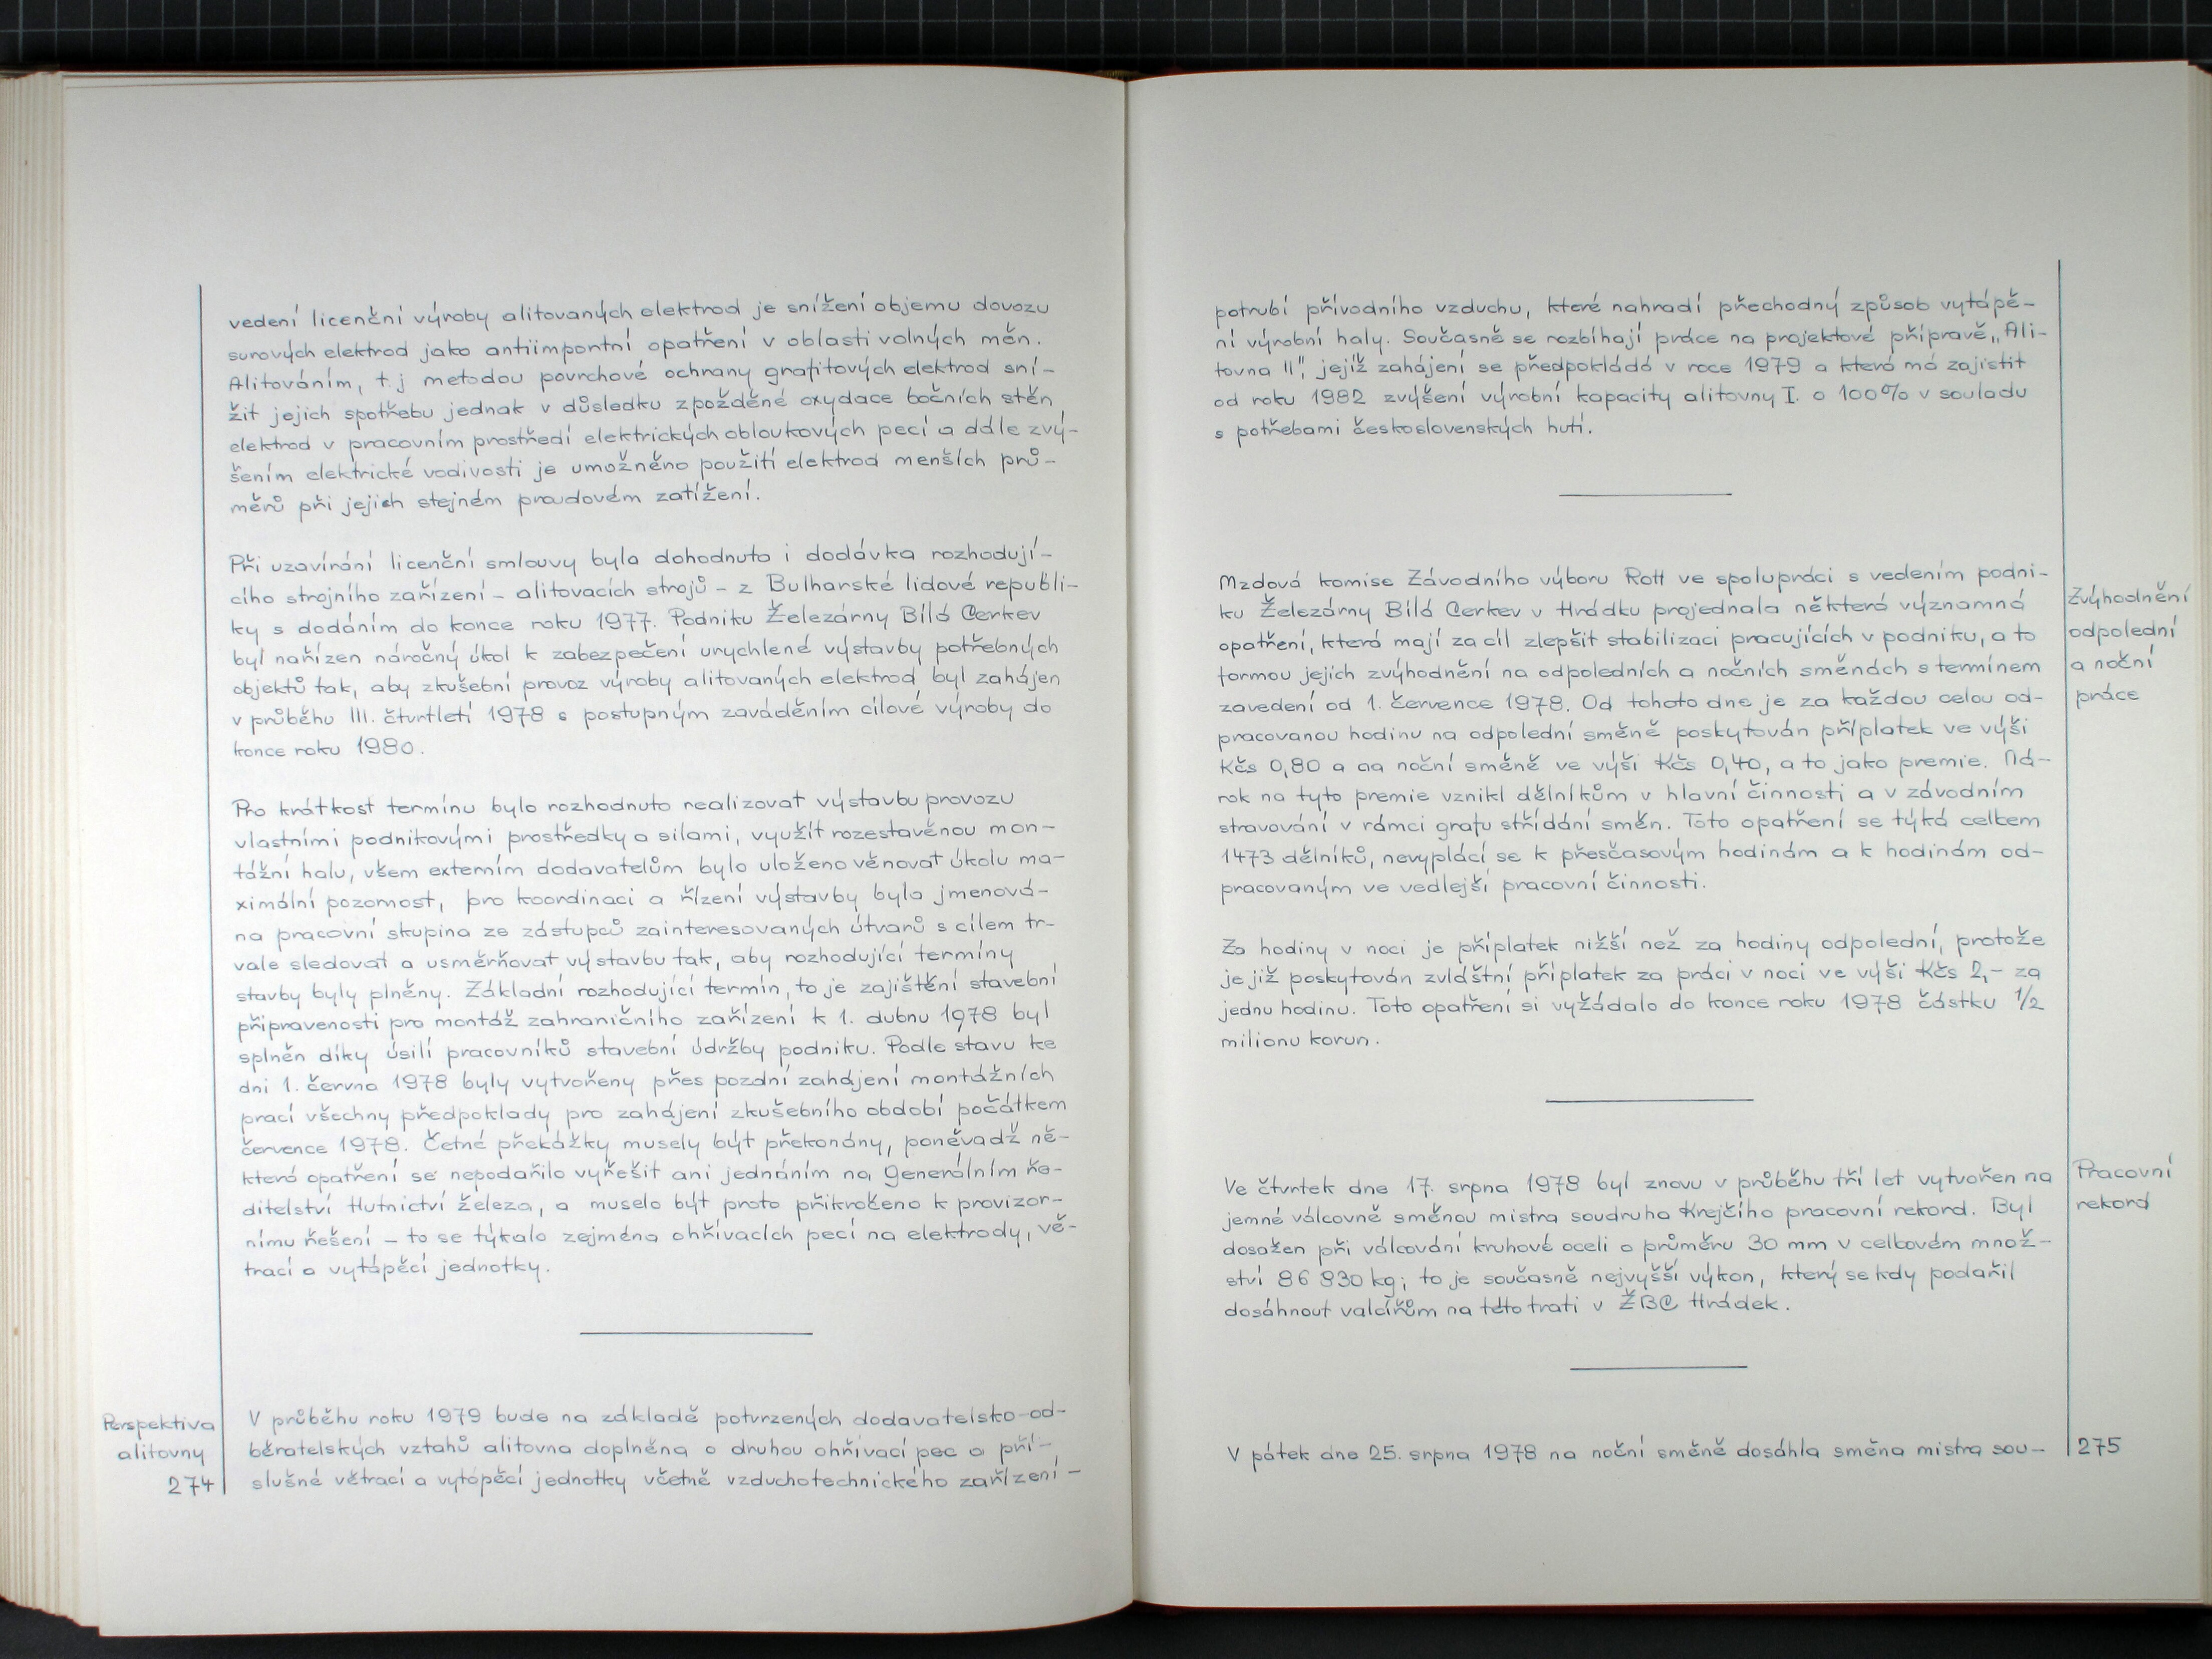 vedení licenční výroby alitovaných elektrod je snížení objemu dovozu
surových elektrod jako antiimportní opatření v oblasti volných měn.
Alitováním, t.j metodou povrchové ochrany grafitových elektrod sní-
žit jejich spotřebu jednak v důsledku zpožděné oxydace bočních stěn
elektrod v pracovním prostředí elektrických obloukových pecí a dále zvý-
šením elektrické vodivosti je umožněno použití elektrod menších prů-
měrů při jejich stejném proudovém zatížení.
Při uzavírání licenční smlouvy byla dohodnuta i dodávka rozhodují-
cího strojního zařízení - alitovacích strojů - z Bulharské lidové republi-
ky s dodáním do konce roku 1977. Podniku Železárny Bílá Cerkev
byl nařízen náročný úkol k zabezpečení urychlené výstavby potřebných
objektů tak, aby zkušební provoz výroby alitovaných elektrod byl zahájen
v průběhu III. čtvrtletí 1978 s postupným zaváděním cílové výroby do
konce roku 1980.
Pro krátkost termínu bylo rozhodnuto realizovat výstavbu provozu
vlastními podnikovými prostředky a silami, využít rozestavěnou mon-
tážní halu, všem externím dodavatelům bylo uloženo věnovat úkolu ma-
ximální pozornost, pro koordinaci a řízení výstavby byla jmenová-
na pracovní skupina ze zástupců zainteresovaných útvarů s cílem tr-
vale sledovat a usměrňovat výstavbu tak, aby rozhodující termíny
stavby byly plněny. Základní rozhodující termín, to je zajištění stavební
připravenosti pro montáž zahraničního zařízení k 1. dubnu 1978 byl
splněn díky úsilí pracovníků stavební údržby podniku. Podle stavu ke
dni 1. června 1978 byly vytvořeny přes pozdní zahájení montážních
prací všechny předpoklady pro zahájení zkušebního období počátkem
července 1978. Četné překážky musely být překonány, poněvadž ně-
která opatření se nepodařilo vyřešit ani jednáním na Generálním ře-
ditelství Hutnictví železa, a muselo být proto přikročeno k provizor-
nímu řešení - to se týkalo zejména ohřívacích pecí na elektrody, vě-
trací a vytápěcí jednotky.
Perspektiva
alitovny
274
V průběhu roku 1979 bude na základě potvrzených dodavatelsko-od-
běratelských vztahů alitovna doplněna o druhou ohřívací pec a pří-
slušné větrací a vytápěcí jednotky včetně vzduchotechnického zařízení -
potrubí přívodního vzduchu, které nahradí přechodný způsob vytápě-
ní výrobní haly. Současně se rozbíhají práce na projektové přípravě „Ali-
tovna II", jejíž zahájení se předpokládá v roce 1979 a která má zajistit
od roku 1982 zvýšení výrobní kapacity alitovny I. o 100% v souladu
s potřebami československých hutí.
Mzdová komise Závodního výboru ROH ve spolupráci s vedením podni-
ku Železárny Bílá Cerkev v Hrádku projednala některá významná
opatření, která mají za cíl zlepšit stabilizaci pracujících v podniku, a to
formou jejich zvýhodnění na odpoledních a nočních směnách s termínem
zavedení od 1. července 1978. Od tohoto dne je za každou celou od-
pracovanou hodinu na odpolední směně poskytován příplatek ve výši
Kčs 0,80 a na noční směně ve výši Kčs 0,40, a to jako premie. Ná-
rok na tyto premie vznikl dělníkům v hlavní činnosti a v závodním
stravování v rámci grafu střídání směn. Toto opatření se týká celkem
1473 dělníků, nevyplácí se k přesčasovým hodinám a k hodinám od-
pracovaným ve vedlejší pracovní činnosti.
Zvýhodnění
odpolední
a noční
práce
Za hodiny v noci je příplatek nižší než za hodiny odpolední, protože
je již poskytován zvláštní příplatek za práci v noci ve výši Kčs 2,- za
jednu hodinu. Toto opatření si vyžádalo do konce roku 1978 částku 1/2
milionu korun.
Ve čtvrtek dne 17. srpna 1978 byl znovu v průběhu tří let vytvořen na
jemné válcovně směnou mistra soudruha Krejčího pracovní rekord. Byl
dosažen při válcování kruhové oceli o průměru 30 mm v celkovém množ-
ství 86 830 kg; to je současně nejvyšší výkon, který se kdy podařil
dosáhnout valcířům na této trati v ŽBC Hrádek.
Pracovní
rekord
V pátek dne 25. srpna 1978 na noční směně dosáhla směna mistra sou-
275